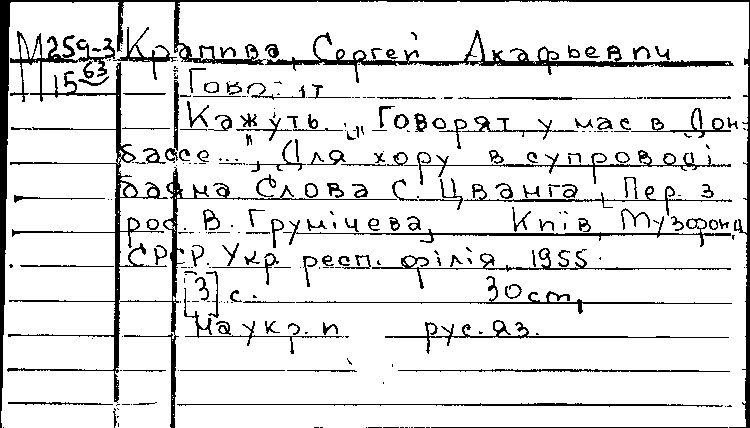 М 259-3 Крапива, Сергей Акафьевич
15 63
Говорят
Кажуть... („Говорят, у нас в Дон-
бассе..."). Для хору в супроводі
баяна Слова С. Цванга, Пер. з
рос. В. Грумічева, Київ, Музфонд
СРСР. Укр. респ. філія, 1955.
[3] с. 30 cm,
На укр. и рус. яз.